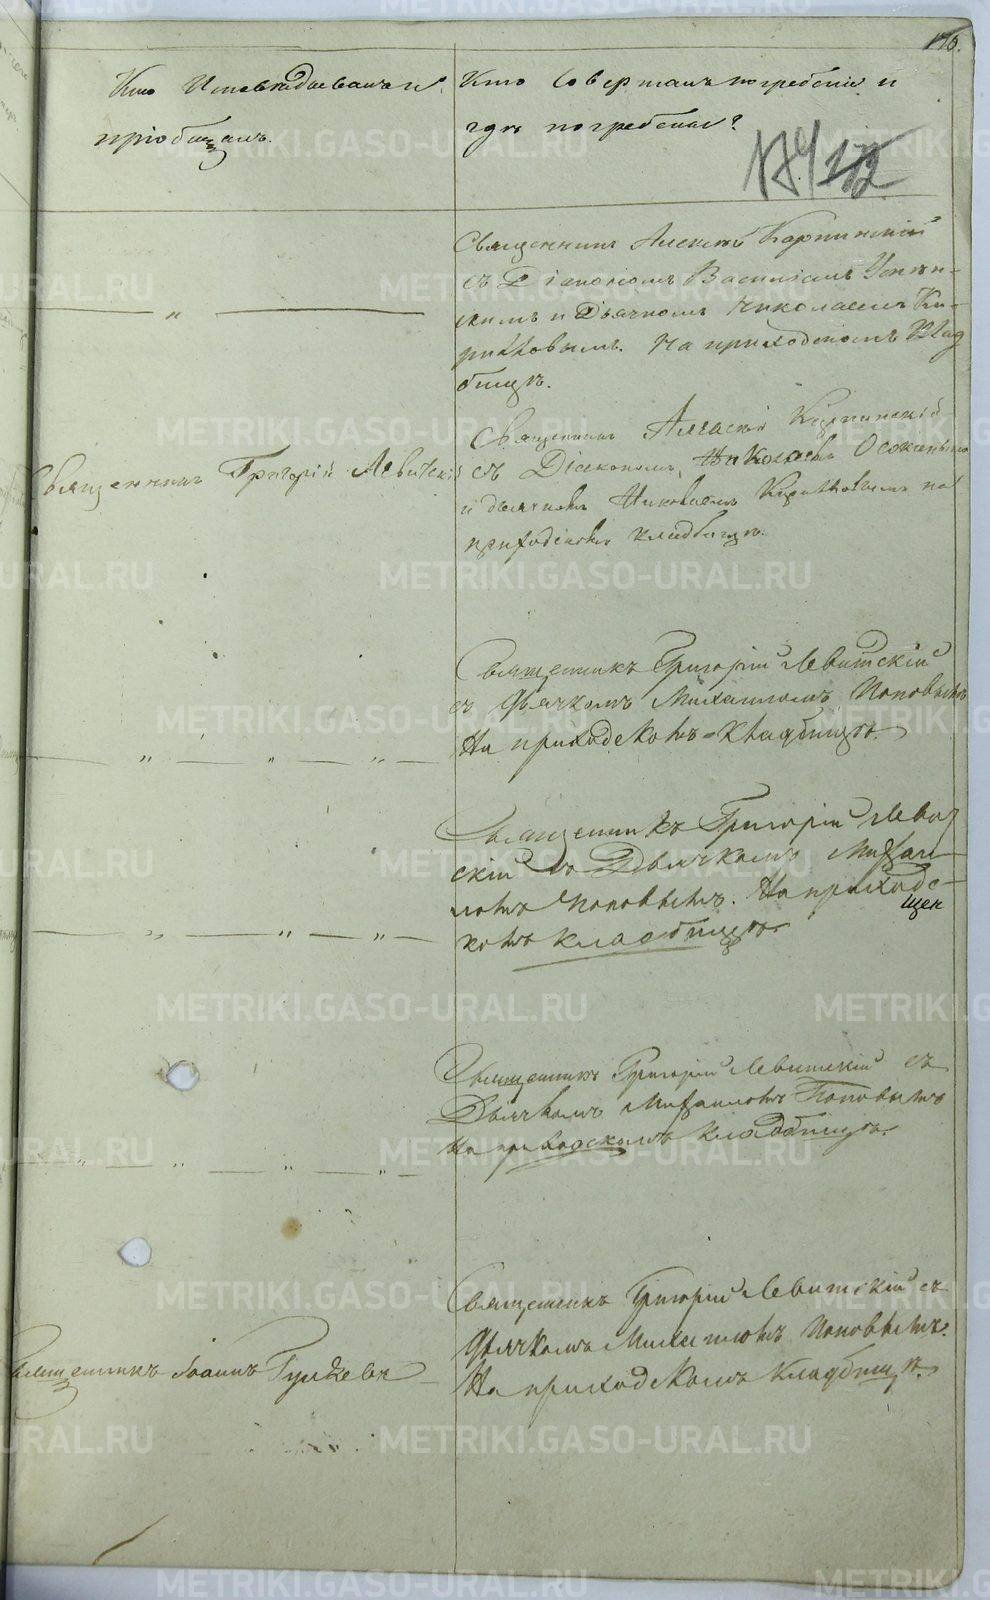 176.
Кто Исповѣдывалъ и
пріобщалъ.
Кто Совершалъ погребеніе и
гдѣ погребены?
174 172
Священникъ Алексѣй Карпинскій
съ Діакономъ Василіемъ
скимъ и Дьячкомъ Николаемъ Ки-
риковымъ. На приходскомъ Клад
бищѣ.
Священникъ Григорій Левитскій
Священникъ Алексѣй Карпинскій
съ Діакономъ
и дьячкомъ Николаемъ Кириковымъ на
приходскомъ кладбищѣ.
Священникъ Григорій Левитскій
съ Дьячкомъ Михаиломъ Поповымъ
На приходскомъ Кладбищѣ.
Священникъ Григорій Левит
скій съ Дьячкомъ Михаи-
ломъ Поповымъ. На приходс-
щен
комъ кладбищѣ.
Священникъ Григорій Левитскій съ
Дьячкомъ Михаиломъ Поповымъ
На приходскомъ кладбищѣ.
Священникъ Іоаннъ
Священникъ Григорій Левитскій съ
Дьячкомъ Михаиломъ Поповымъ.
На приходскомъ Кладбищѣ.
METRIKI.GASO-URAL.RU